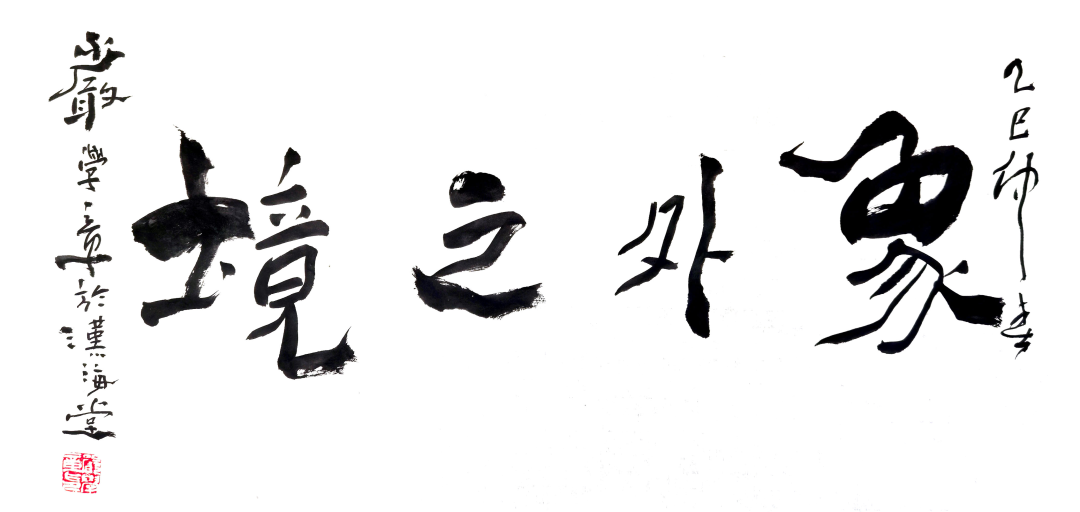 乙巳仲春
象外之境
嚴學章於漢海堂